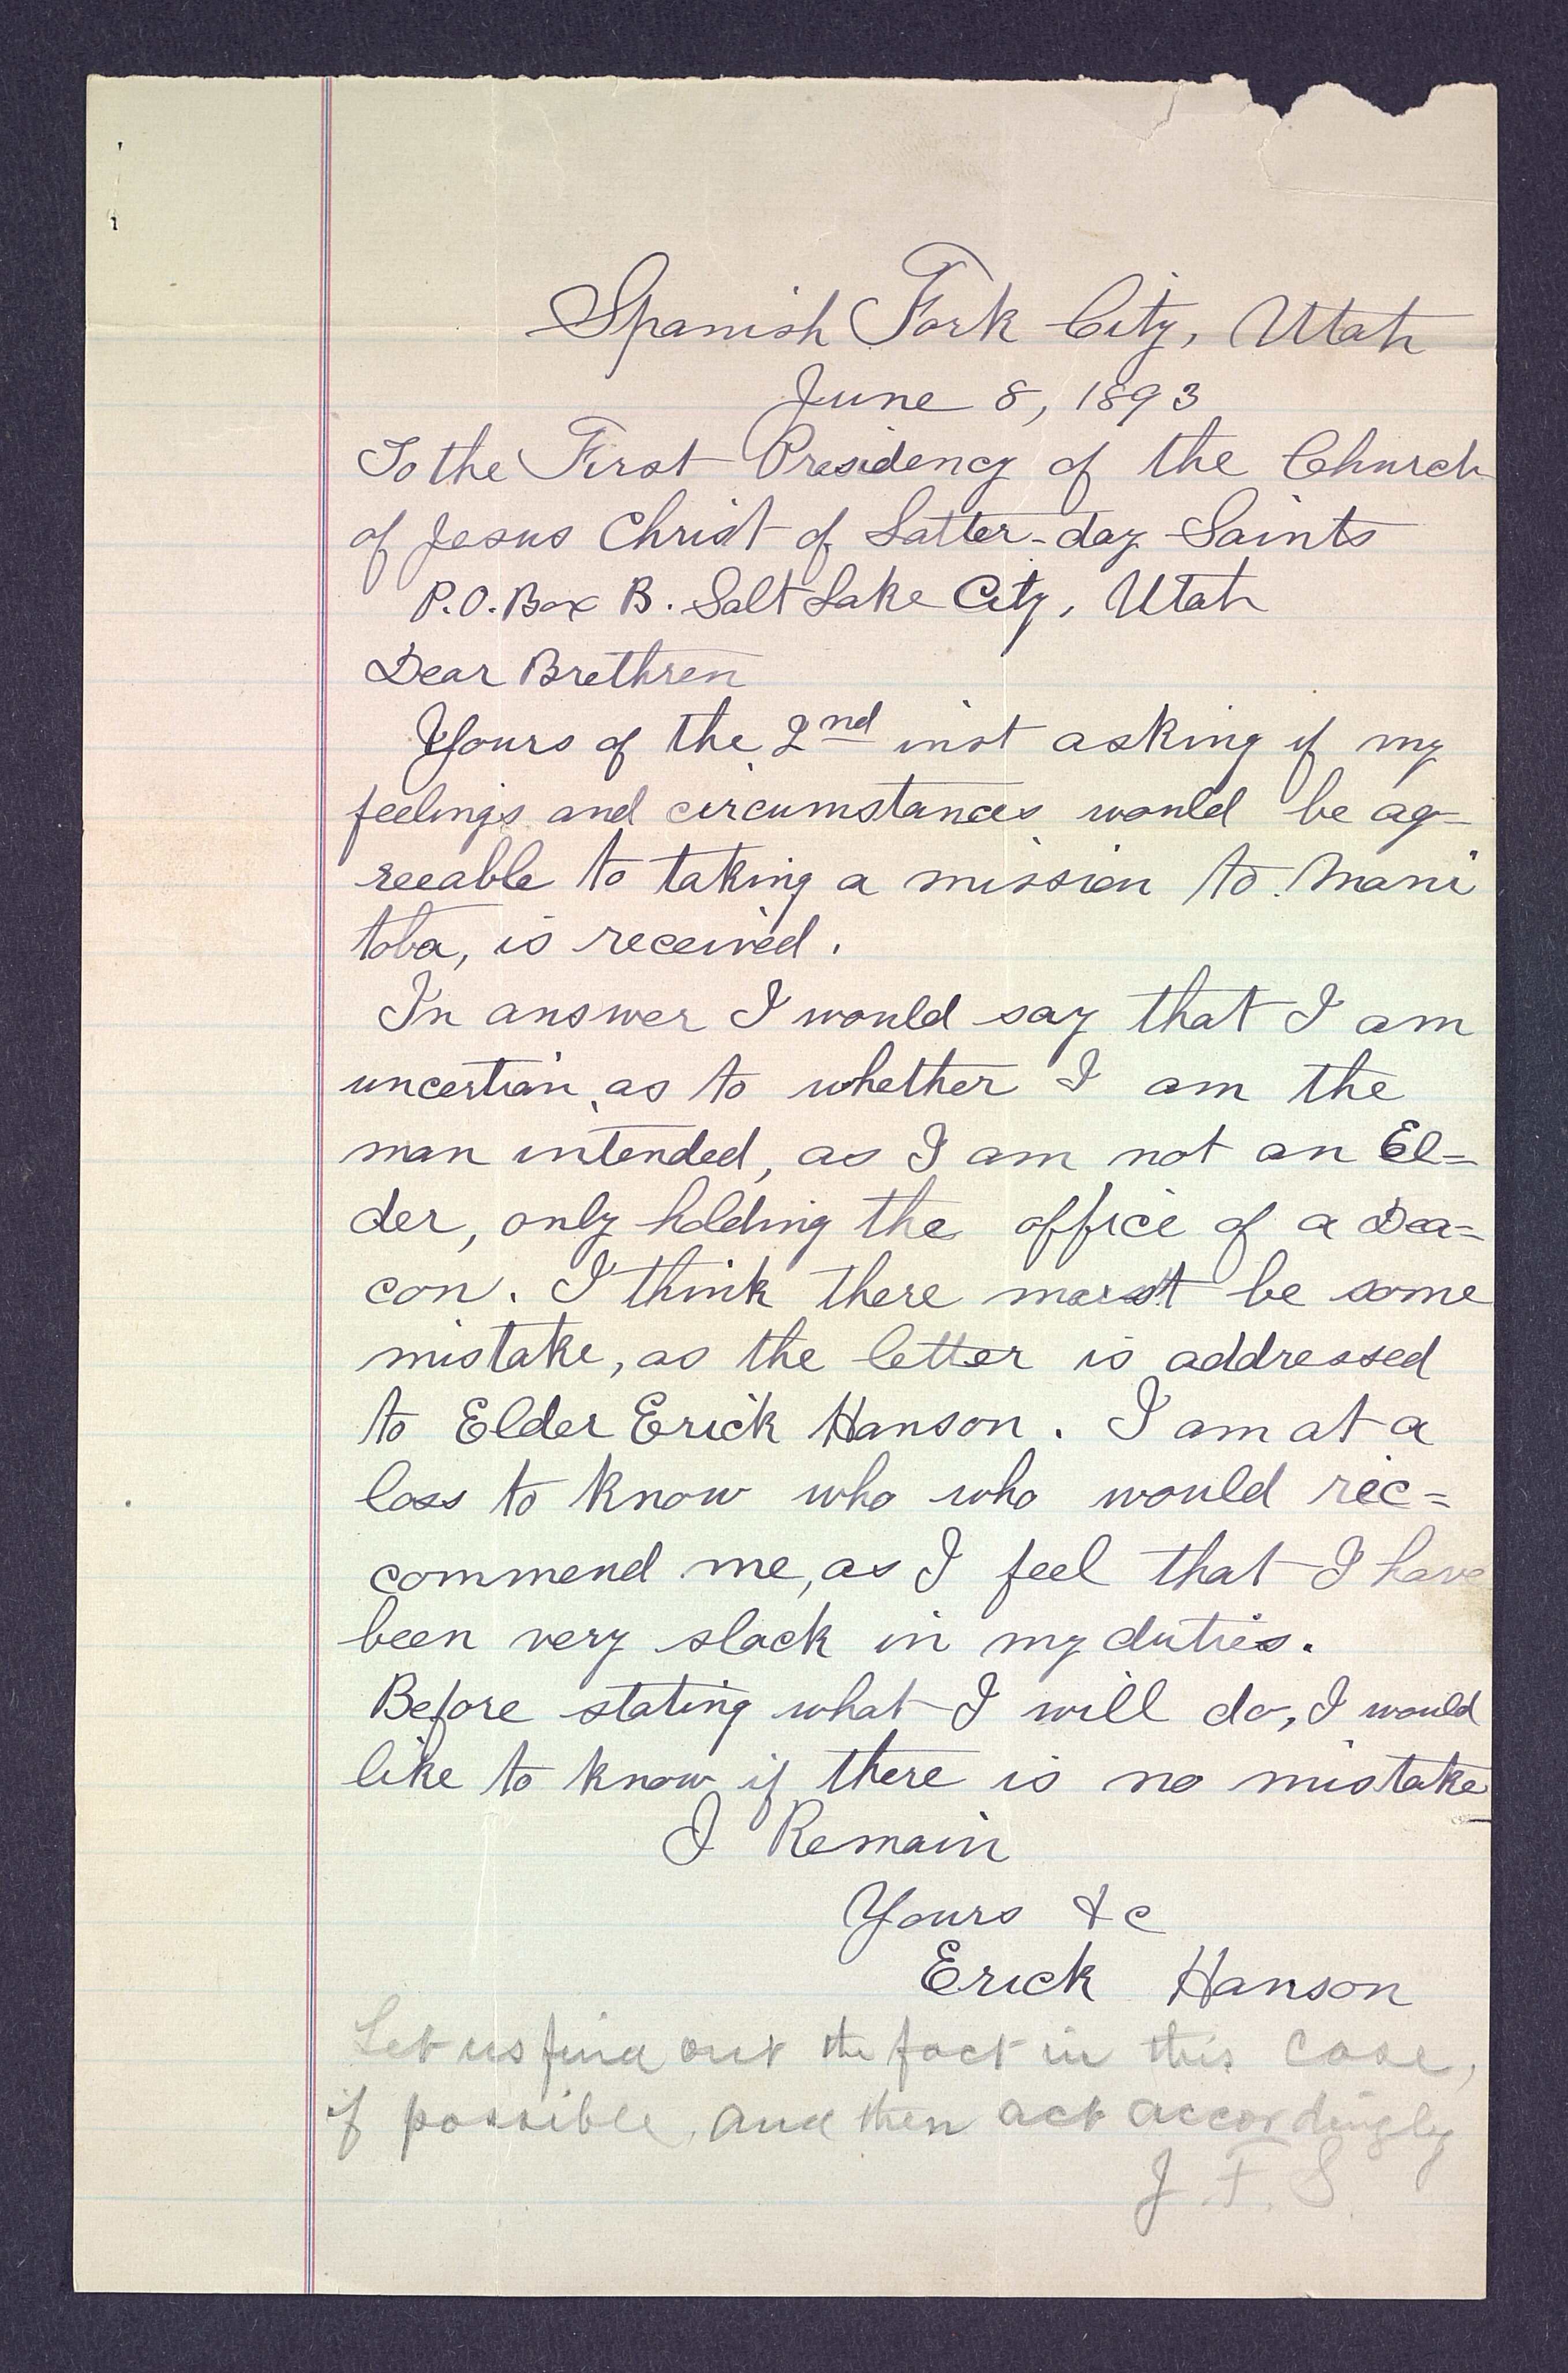 Spanish Fork City, Utah
June 8, 1893
To the First Presidency of the Church
of Jesus Christ of Latter-day Saints
P.O. Box B. Salt Lake City, Utah
Dear Brethren
Yours of the 2nd inst asking if my
feelings and circumstances would be ag-
reeable to taking a mission to Mani
toba, is received.
In answer I would say that I am
uncertian, as to whether I am the
man intended, as I am not an El=
der, only holding the office of a Dea=
con. I think there must be some
mistake, as the letter is addressed
to Elder Erick Hanson. I am at a
loss to know who who would rec=
commend me, as I feel that I have
been very slack in my duties.
Before stating what I will do, I would
like to know if there is no mistake
I Remain
Yours &c
Erick Hanson
Let us find out the fact in this case,
if possible, and then act accordingly
J. F. S.